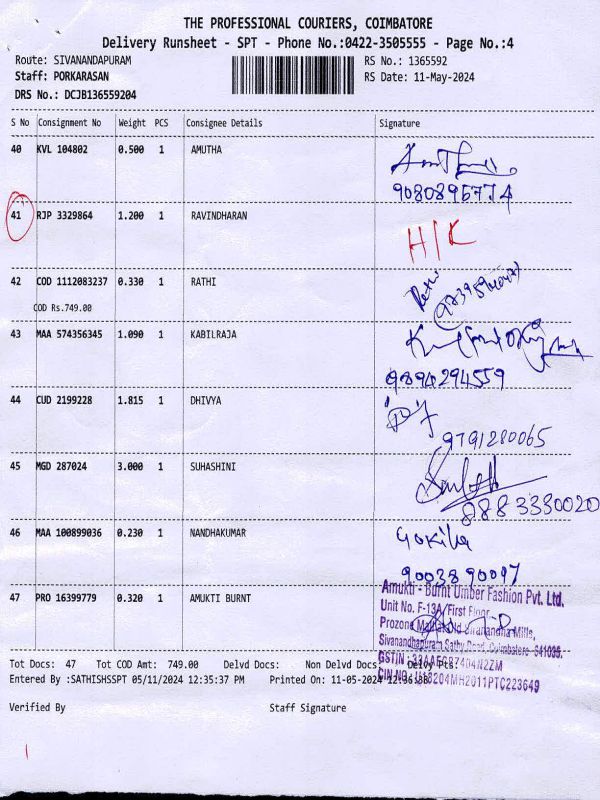 THE PROFESSIONAL COURIERS, COIMBATORE
Delivery Runsheet - SPT - Phone No.:0422-3505555 - Page No.:4
Route: SIVANANDAPURAM RS No.: 1365592
Staff: PORKARASAN RS Date: 11-May-2024
DRS No.: DCJB136559204
S No Consignment No Weight PCS Consignee Details Signature
40 KVL 104802 0.500 1 AMUTHA
9080895774
41 RJP 3329864 1.200 1 RAVINDHARAN
H/K
42 COD 1112083237 0.330 1 RATHI Rathi
COD Rs.749.00
43 MAA 574356345 1.090 1 KABILRAJA
9894294559
44 CUD 2199228 1.815 1 DHIVYA
9791280065
45 MGD 287024 3.000 1 SUHASHINI
8883330020
46 MAA 100899036 0.230 1 NANDHAKUMAR Gokila
9003890097
47 PRO 16399779 0.320 1 AMUKTI BURNT
Amukti - Burnt Umber Fashion Pvt. Ltd.
Unit No. F-13A/First Floor
Prozone Mall, Old Sivanandha Mills,
Sivanandhapuram Sathy Road, Coimbatore- 641035.
GSTIN :
CIN NO.
Tot Docs: 47 Tot COD Amt: 749.00 Delvd Docs: Non Delvd Docs: Delvy Pcs:
Entered By :SATHISHSSPT 05/11/2024 12:35:37 PM Printed On: 11-05-2024
Verified By Staff Signature